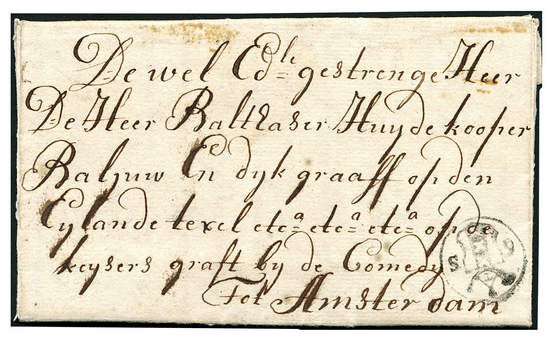 De wel Edle gestrenge Heer
De Heer Balthaser Huydekooper
Baljuw En dykgraaff op den
Eylande texel etca etca etca op de
keysers graft by de Comedy
Tot Amsterdam